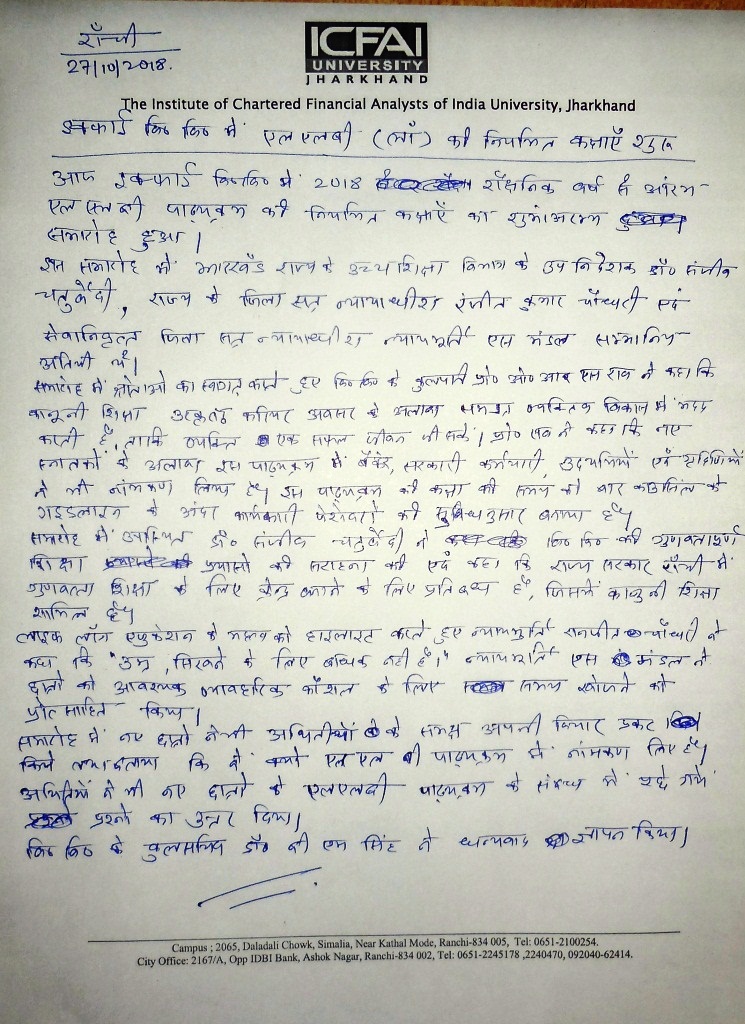 राँची
27/10/2018.
ICFAI
UNIVERSITY
JHARKHAND
The Institute of Chartered Financial Analysts of India University, Jharkhand
वि० वि० में एलएलबी (लॉ) की नियमित कक्षाएँ शुरू
आज इक्फाई वि०वि० में 2018 शैक्षनिक वर्ष से आरंभ
एलएलबी पाठ्यक्रम की नियमित कक्षाएँ का शुभांआरम्भ
समारोह हुआ।
इस समारोह में झारखंड राज्य के उच्च शिक्षा विभाग के उप निदेशक डॉ० संजीव
चतुर्वेदी, राज्य के जिला सत्र न्यायाधीश रंजीत कुमार चौधरी एवं
सेवानिवृत्त जिला सत्र न्यायाधीश न्यायमूर्ति एस मंडल सम्मानित
अतिथी थे।
समारोह में श्रोताओ का स्वागत करते हुए वि० वि० के कुलपति प्रो० ओ० आर एस राव ने कहा कि
कानूनी शिक्षा उत्कृष्ठ करियर अवसर के अलावा समग्र व्यक्तित्व विकास में मदद
करती है, ताकि व्यक्ति एक सफल जीवन जी सके। प्रो० राव ने कहा कि नए
स्नातकों के अलावा इस पाठ्यक्रम में बैंकर, सरकारी कर्मचारी, उद्यमियों एवं गृहिणियों
ने भी नांमकण लिया है। इस पाठ्यक्रम की कक्षा की समय को बार काउंसिल के
गाइडलाइन के अंदर कार्यकारी पेशेवरों की सुविधानुसार बनाया है।
समारोह में उपस्थित डॉ० संजीव चतुर्वेदी ने वि० वि० की गुणवतापूर्ण
शिक्षा प्रयासो की सराहना की एवं कहा कि राज्य सरकार राँची में
गुणवत्ता शिक्षा के लिए केन्द्र बनाने के लिए प्रतिबध्य है, जिसमें कानूनी शिक्षा
शामिल है।
लाइफ लॉंग एजुकेशन के महत्व को हाइलाइट करते हुए न्यायमूर्ति रानजीत चौधरी ने
कहा कि "उम्र, सिखने के लिए बाधक नहीं है।" न्यायमूर्ति एस मंडल ने
छात्रों को आवश्यक व्यावहारिक कौशल के लिए समय खोजने को
प्रोत्साहित किया।
समारोह में नए छात्रों ने भी अथितीयों के समक्ष अपनी विचार प्रकट
किये तथा बताया कि वे क्यों एल एल बी पाठ्यक्रम में नांमकण लिए है।
अथितियों ने भी नए छात्रों के एलएलबी पाठ्यक्रम के संबन्ध में पूछे गये
प्रश्नो का उत्तर दिया।
वि० वि० के कुलसचिव डॉ० बी एम सिंह ने धन्यवाद ज्ञापन किया।
Campus ; 2065, Daladali Chowk, Simalia, Near Kathal Mode, Ranchi-834 005, Tel: 0651-2100254.
City Office: 2167/A, Opp IDBI Bank, Ashok Nagar, Ranchi-834 002, Tel: 0651-2245178 ,2240470, 092040-62414.